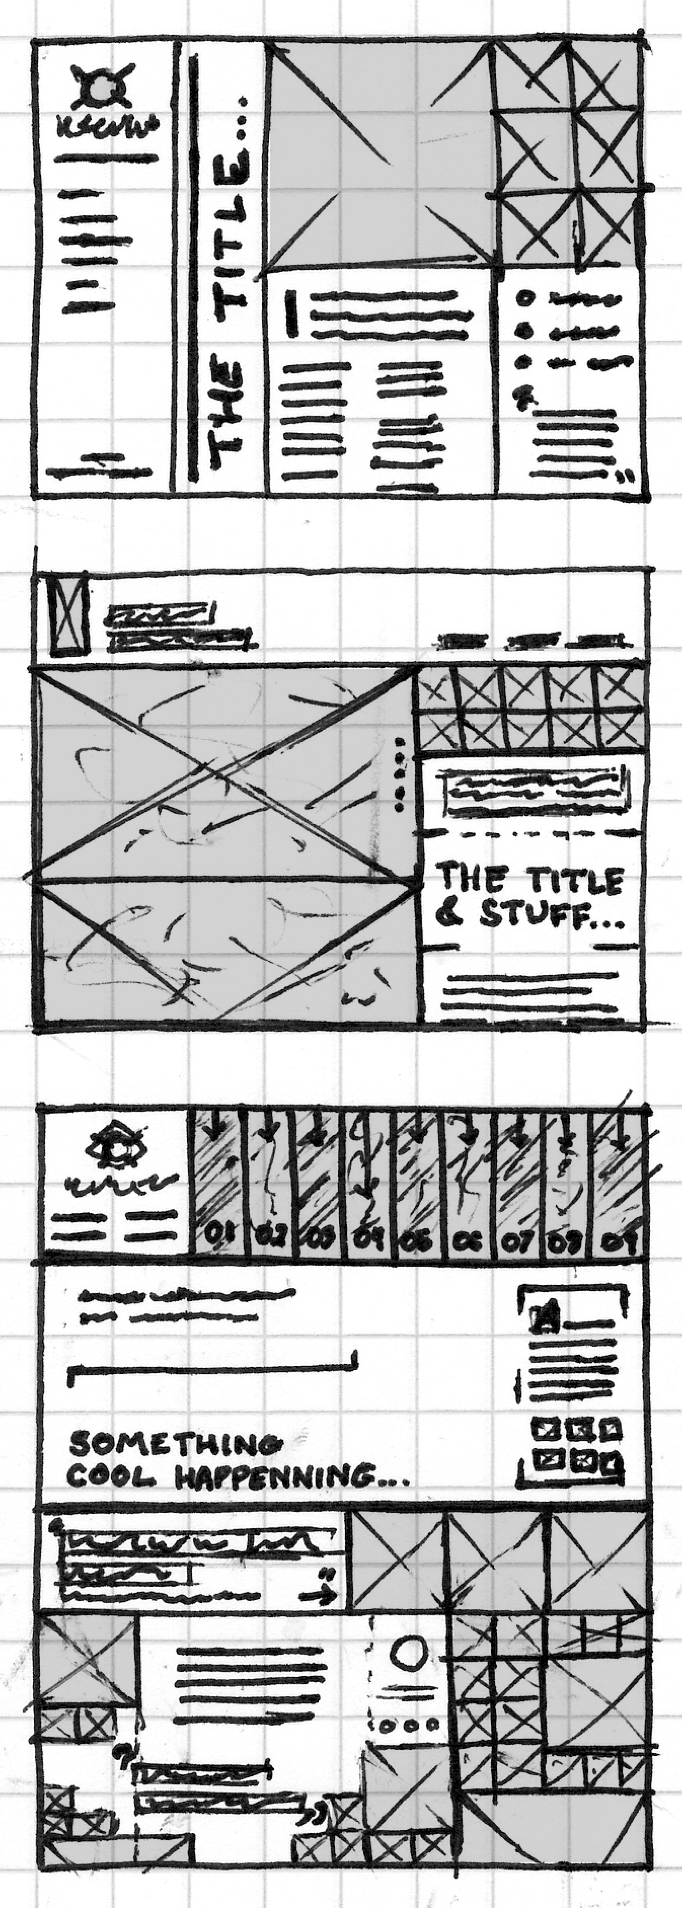 THE TITLE...
THE TITLE
& STUFF...
01 02 03 04 05 06 07 08 09
SOMETHING
COOL HAPPENNING...